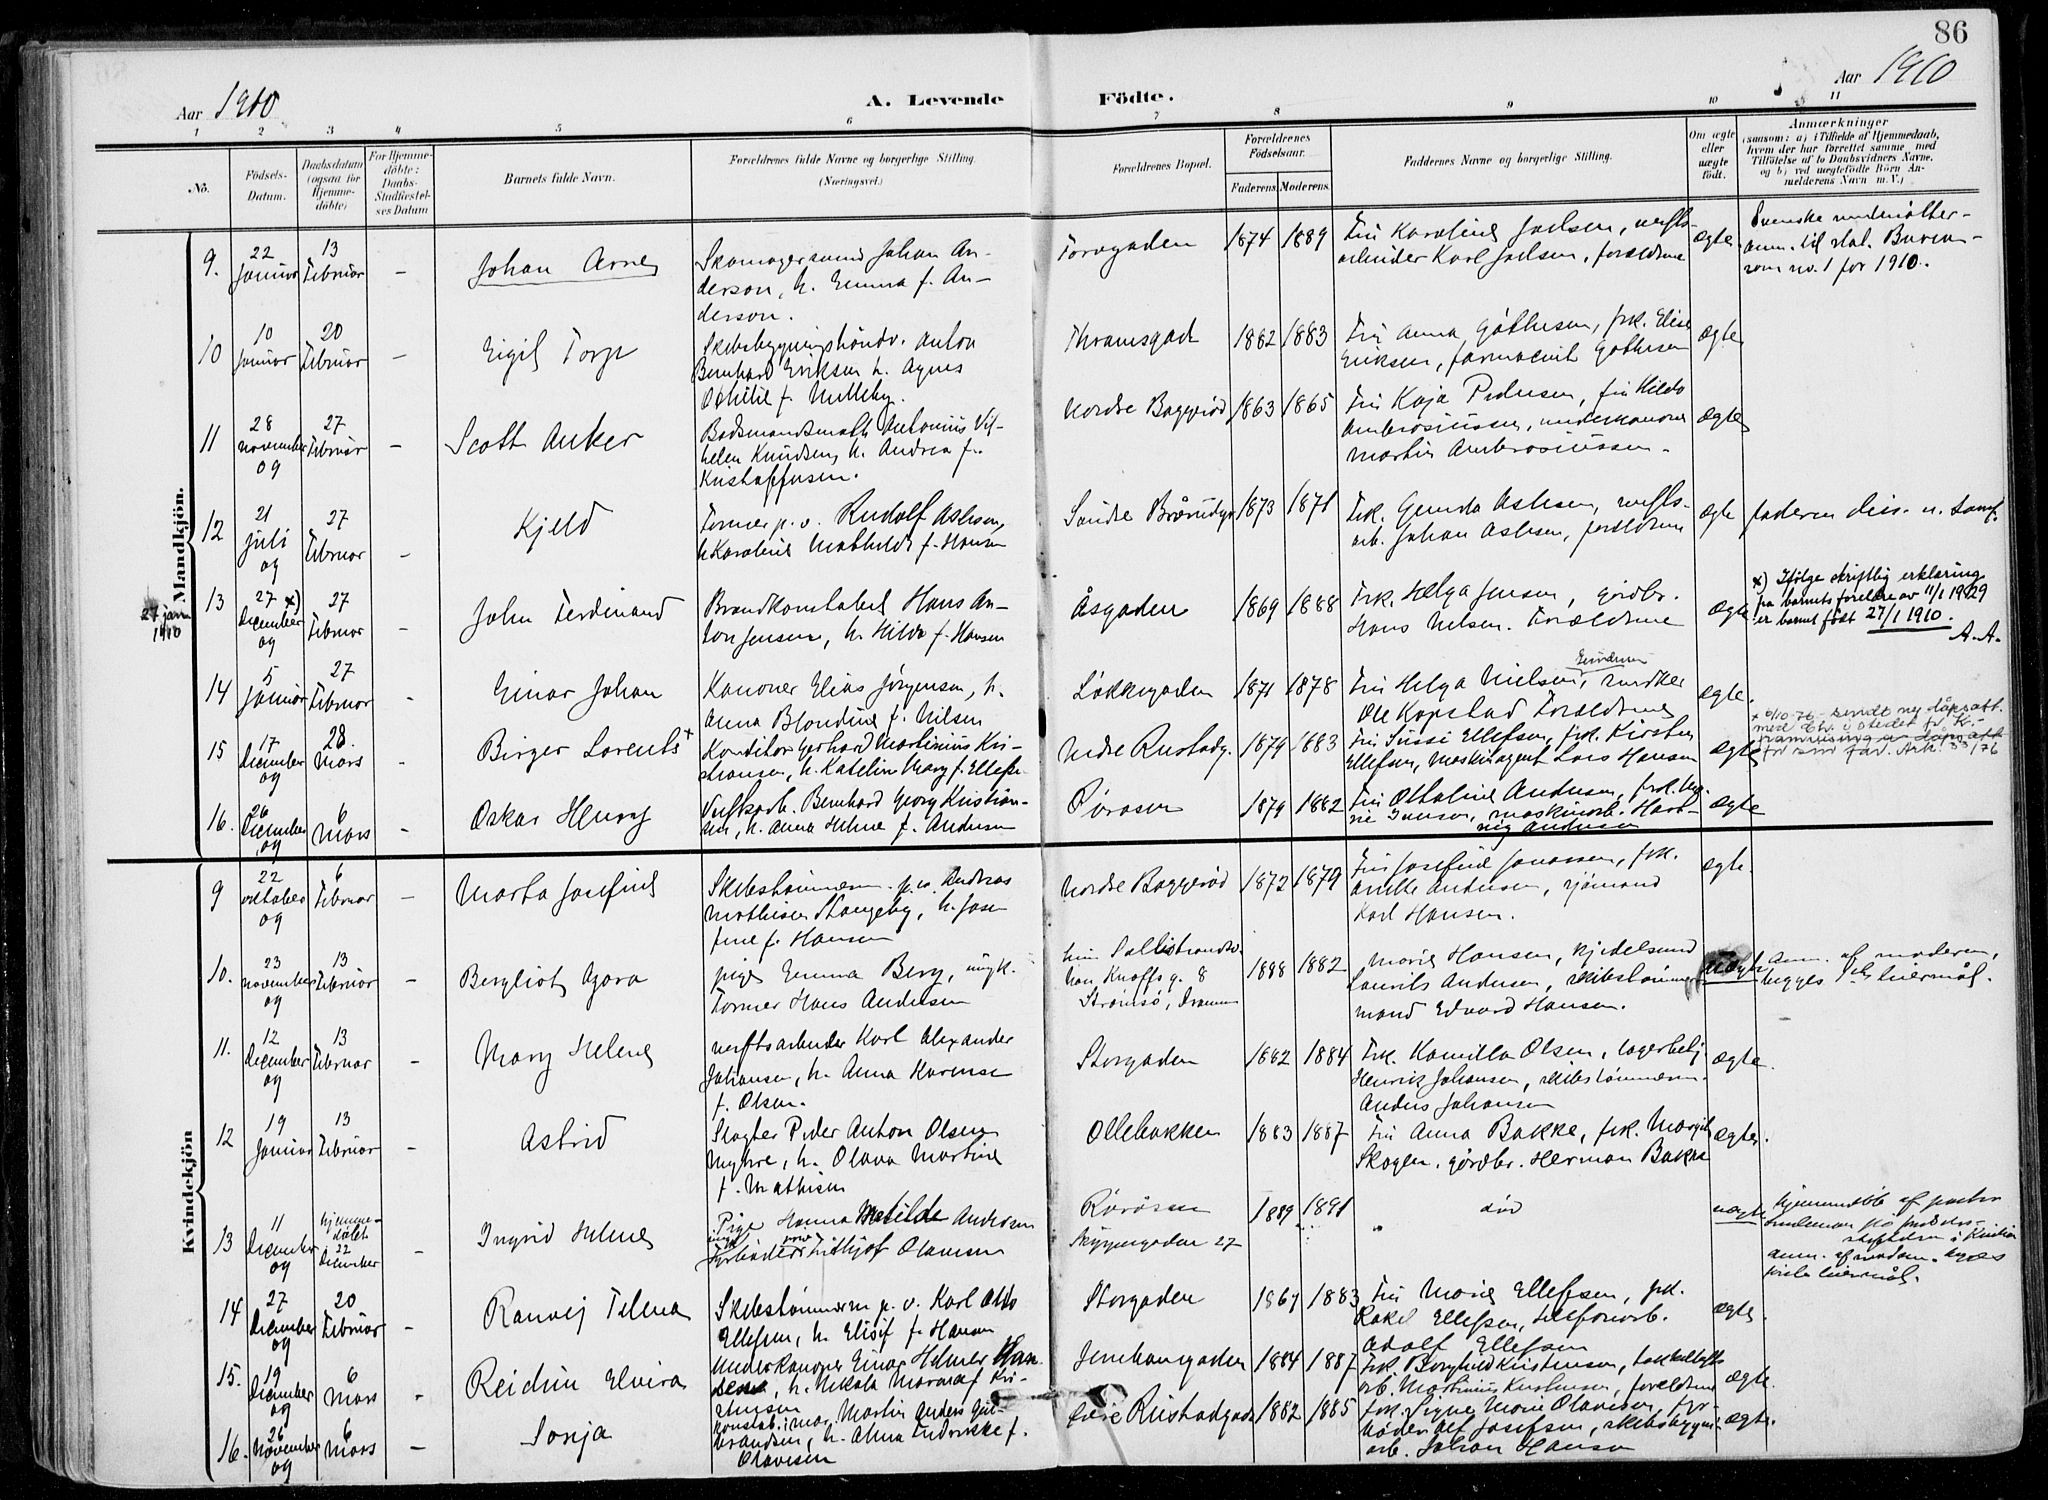 86
Aar 1910
A. Levende Födte.
Aar 1910
1 2 3 4 5 6 7 8 9 10 11
No.
Födsels-Datum.
Daabsdatum (ogsaa for Hjemme-döbte)
For Hjemme-döbte: Daabs-Stadfæstel-ses Datum
Barnets fulde Navn.
Forældrenes fulde Navne og borgerlige Stilling. (Næringsvei.)
Forældrenes Bopæl.
Forældrenes Födselsaar. Faderens. Moderens.
Faddernes Navne og borgerlige Stilling.
Om ægte eller uægte födt.
Anmærkninger (saasom: a) i Tilfælde af Hjemmedaab, hvem der har forrettet samme, med Tilföielse af to Daabsvidners Navne, og b) ved uægtefödte Börn An-melderens Navn m. V.)
Mandkjön.
9. 22 Januar 13 Februar - Johan Arne
Skomagersvend Johan An-
derson, h. Emma f. An-
derson.
Torvgaden 1874 1889
Fru Karoline Joelsen, verfts-
arbeider Karl Joelsen, forældrene
ægte
Svenske undersåtter-
anm. til stat. Burea-
som no. 1 for 1910.
10 10 Januar 20 Februar - Eigil Torp
Skibsbygningshåndv. Anton
Bernhard Eriksen h. Agnes
Othilie f. Melleby.
Thranesgad 1882 1883
Fru Anna Göthesen, frk. Elise
Eriksen, farmaceut Göthesen
ægte
11 28 november 09 27 Februar - Scott Anker
Baadsmandsmath Antonius Vil-
helm Knudsen, h. Andrea f.
Kristoffersen.
Nordre Baggerød 1863 1865
Fru Kaja Pedersen, fru Hilda
Ambrosiussen, underkanoner
Martin Ambrosiussen.
ægte
12 21 juli 09 27 Februar - Kjeld
Former p. v. Rudolf Aslesen,
h Karoline Mathilde f. Hansen
Søndre Brårudg. 1873 1871
Frk. Gunda Aslesen, verfts-
arb. Johan Aslesen, forældrene
ægte
faderen diss. u. samf.
27 jan 1910
13 27 x) December 09 27 Februar - John Ferdinand
Brandkonstabel Hans An-
ton Jensen, h. Hilda f. Hansen
Åsgaden 1869 1888
Frk. Helga Jensen, gårdbr.
Hans Nilsen. Forældrene
ægte
x) Ifølge skriftlig erklæring
fra barnets foreldre av 11/1 1929
er barnet født 27/1 1910.
A. A.
14 5 Januar 27 Februar - Einar Johan
Kanoner Elias Jørgensen, h.
Anna Blondine f. Nilsen
Løkkegaden 1871 1878
Fru Helga Nielsen, snedker
Ole Kopstad Forældrene
ægte.
15 17 December 09 28. Mars Birger Lorents +
Konditor Gerhard Martinius Kri-
stiansen, h. Kateline Mary f. Ellefse
Nedre Rustadg. 1879 1883
Fru Sussi Ellefsen, frk. Kirsten
Ellefsen, maskinagent Lars Hansen
ægte
+ 6/10-76 - sendt ny dåpsatt.
16. 26 December 09 6 Mars - Oskar Henry
Verftsarb. Bernhard Georg Kristian-
sen, h. Anna Helene f. Andersen
Rørosen 1879 1882
Fru Ottoline Andersen,
maskinarb. Hart-
vig Andersen
ægte
Kvindekjön
9 22 oktober 09 6 Februar - Marta Josefine
Skibstømmerm. p. v. Andreas
Mathisen Stangeby, h. Jose
fine f. Hansen
Nordre Baggerød 1872 1879
Fru Josefine Jonassen, frk.
Anette Andersen, sjømand
Karl Hansen.
ægte.
10. 23 november 09 13 Februar - Bergliot Agora
pige Emma Berg, ungk.
Former Hans Andersen
han Knoffs g. 8
Strømsø, Drammen
1888 1882
Marie Hansen, kjedelsmed
Laurits Andersen, skibstømmer
mand Edvard Hansen.
uægte
anm. af moderen,
begges 1ste leiermål.
11. 12 December 09 13 Februar - Mary Helene
Verftsarbeider Karl Alexander
Johansen, h. Anna Karense
f. Olsen.
Storgaden 1882 1884
Frk. Kamilla Olsen, lagerbetj.
Henrik Johansen, skibstømmerm.
Anders Johansen
ægte.
12 19 Januar 13 Februar - Astrid
Slagter Peder Anton Olsen
Myhre, h. Olava Martine
f. Mathisen
Ollebakken 1883 1887
Fru Anna Bakke, frk. Margit
Skogen. gårdbr. Herman Bakke
ægte.
13 11 December 09 hjemme-døbt 22 December - Ingrid Helene
Pige Hanna Matilde Andersen
ungk. Fyrbøder Fridtjof Olavesen
Rørosen
27
1889 1891
" død
uægte
hjemmedøb. af pastor
anm. af moderen. begges
første leiermål.
14 27 December 09 20 Februar - Ranvej Telma
Skibstømmerm p. v. Karl Otto
Ellefsen, h. Elisif f. Hansen
Storgaden 1867 1883
Fru Marie Ellefsen, frk.
Rakel Ellefsen, telefonarb.
Adolf Ellefsen
ægte.
15. 19 December 09 6 Mars - Reidun Elvira
Underkanoner Einar Helmer Han-
sen, h. Nikola Marara f. Kri-
stensen
Jernbanegaden 1884 1887
Frk. Borghild Kristensen,
arb. Martinius Kristensen, forældrene
ægte.
16. 26 November 09 6 Mars - Sonja
Konstab. i mar. Martin Anders Gul-
brandsen, h. Alma Fredrikke f.
Olavesen
Øvre Rustadgade 1882 1885
Frk. Signe Marie Olavesen, fyr-
bøder Alf Josefsen, skibsbygn.
arb. Johan Hansen
ægte.